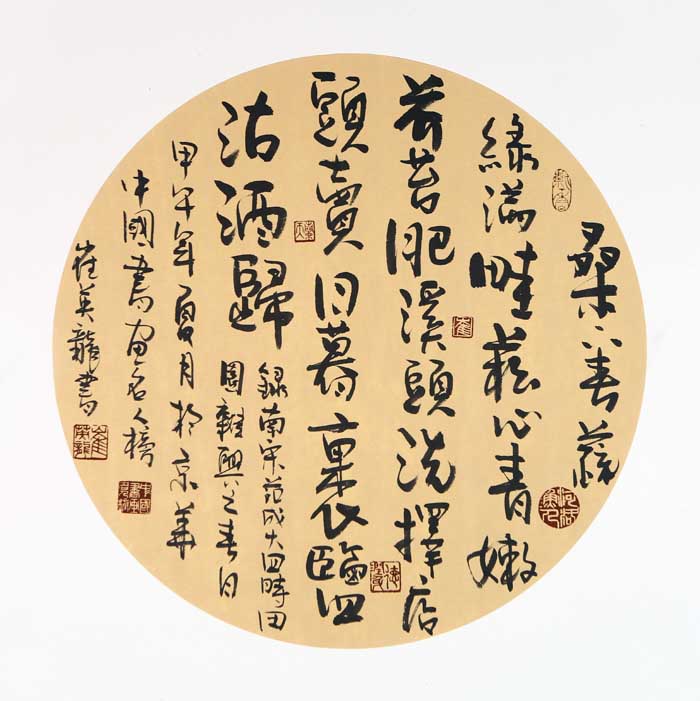 桑下春蔬
綠滿畦菘心青嫩
芥苔肥溪頭洗擇店
頭賣日暮裹鹽
沽酒歸
錄南宋范成大四時田
園雜興之春日
甲午年夏月於京華
中國書畫名人榜
崔英龍書
崔英龍